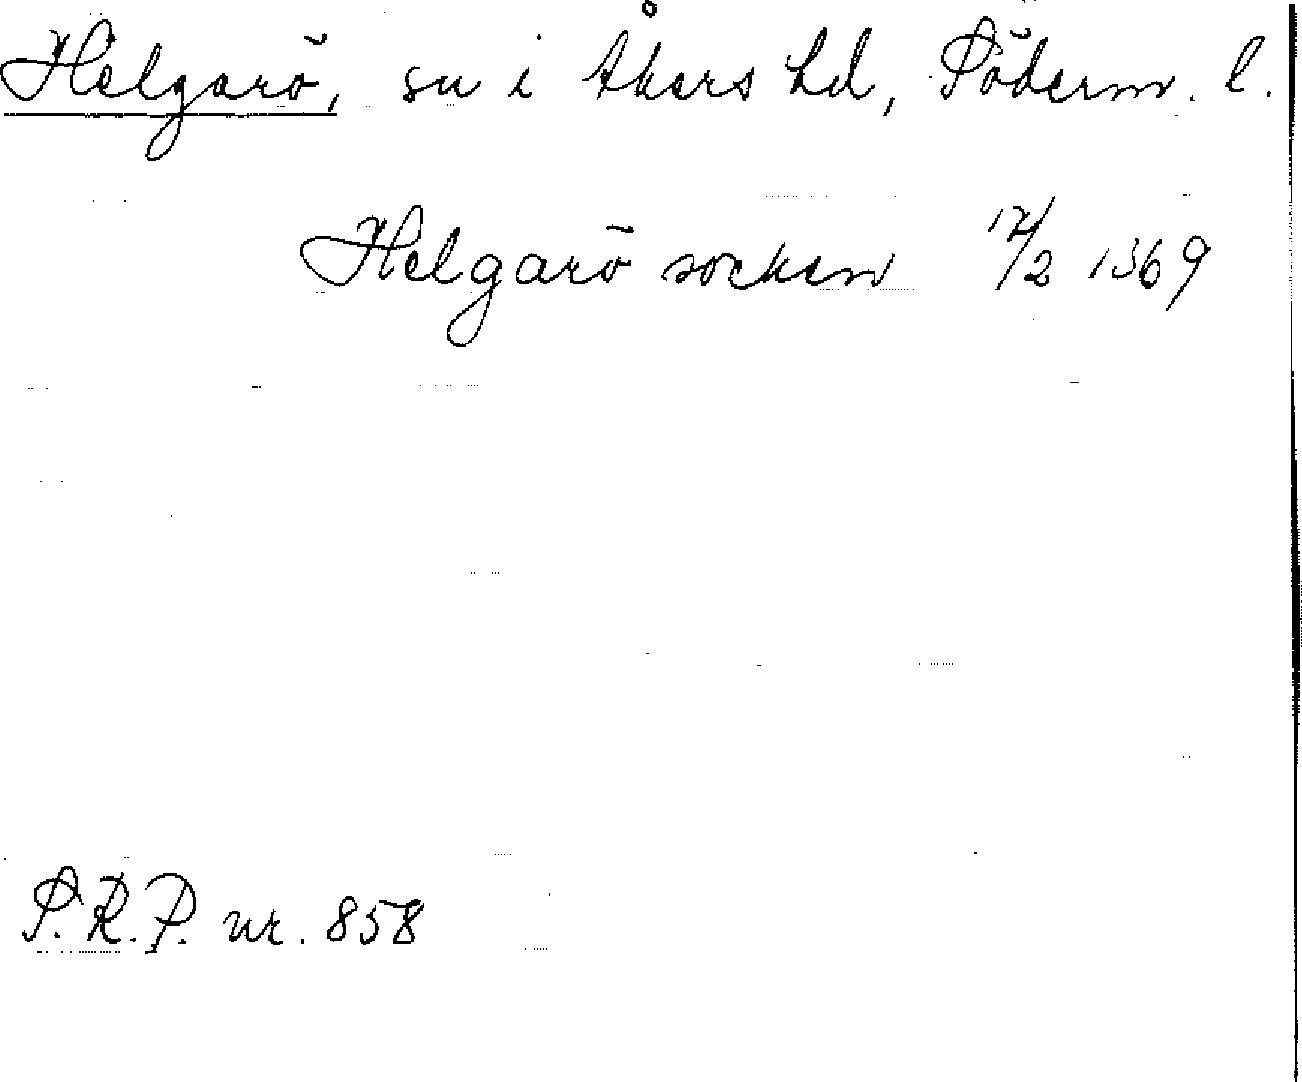 Helgarö, sn i Åkers hd, Söderm. l.
Helgarö socken 17/2 1369
S.R.P. nr. 858